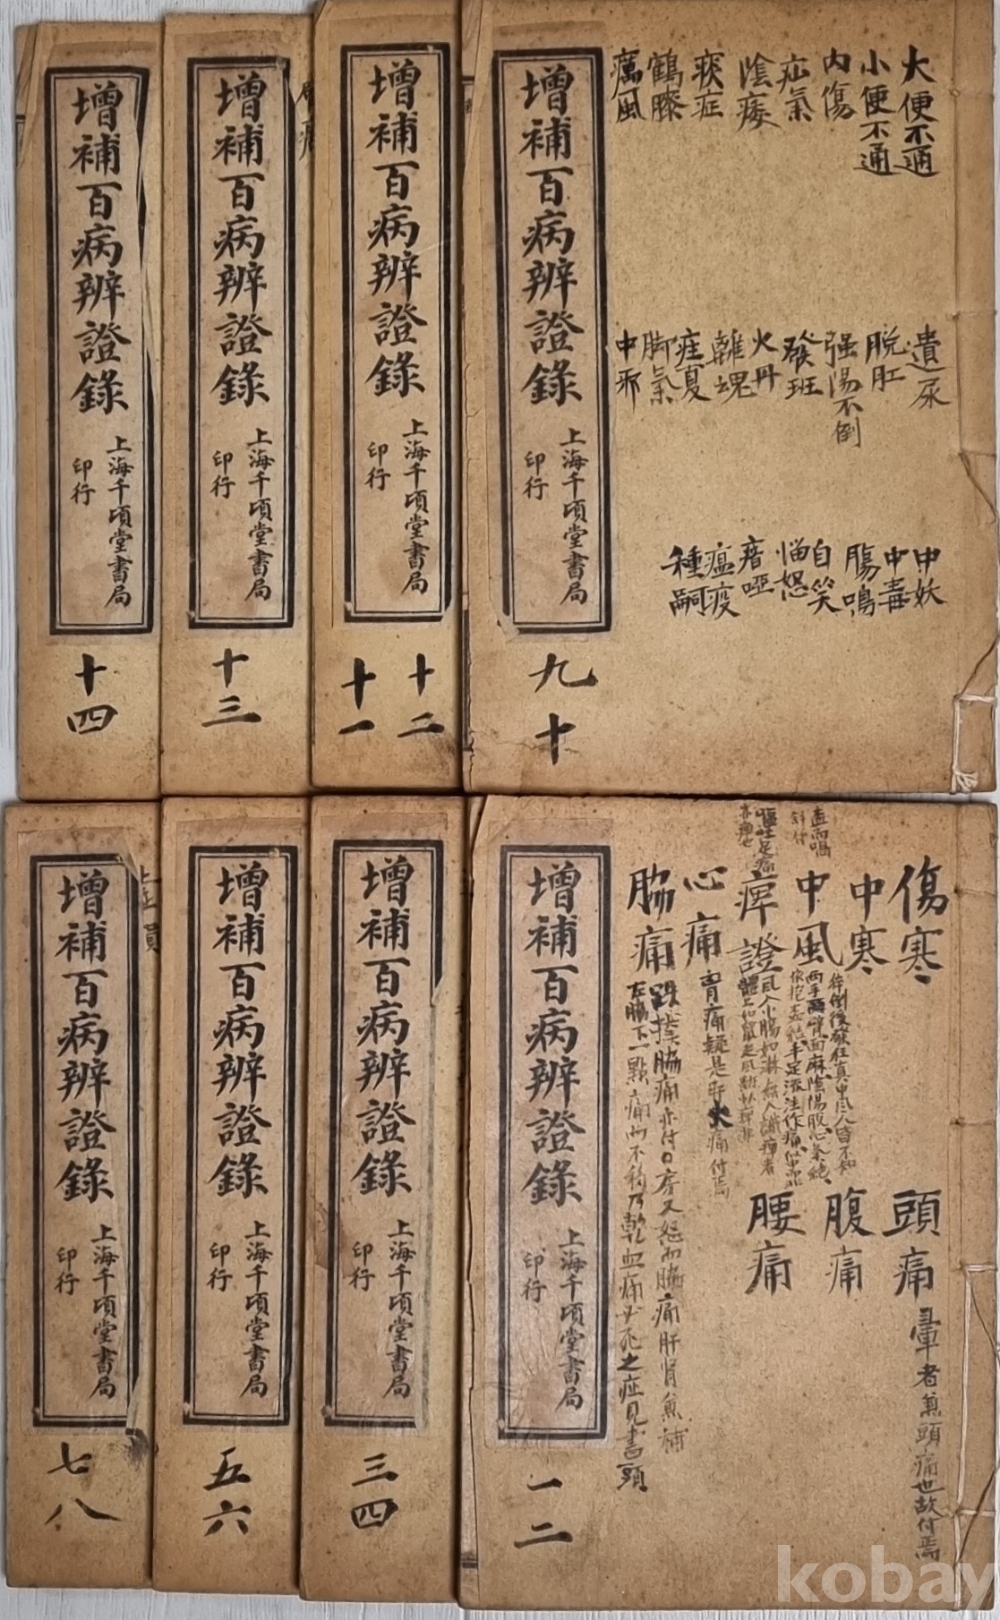 增補百病辨證錄
上海千頃堂書局
印行
九
十
大便不通
小便不通
內傷
疝氣
陰痿
痰症
鶴膝
癘風
遺尿
脱肛
强陽不倒
發班
火丹
離魂
疰夏
脚氣
中邪
中妖
中毒
腸鳴
自笑
惱怒
瘖啞
瘟疫
種嗣
增補百病辨證錄
上海千頃堂書局
印行
十二
十一
增補百病辨證錄
上海千頃堂書局
印行
十三
增補百病辨證錄
上海千頃堂書局
印行
十四
增補百病辨證錄
上海千頃堂書局
印行
一
二
傷寒
中寒
中風
痺證
心痛
脇痛
胃痛疑是肝火痛付焉
左脇下一點痛而不移乃乾血痛必死之症見書頭
頭痛
暈者兼頭痛也故付焉
腹痛
腰痛
增補百病辨證錄
上海千頃堂書局
印行
三
四
增補百病辨證錄
上海千頃堂書局
印行
五
六
增補百病辨證錄
上海千頃堂書局
印行
七
八
kobay